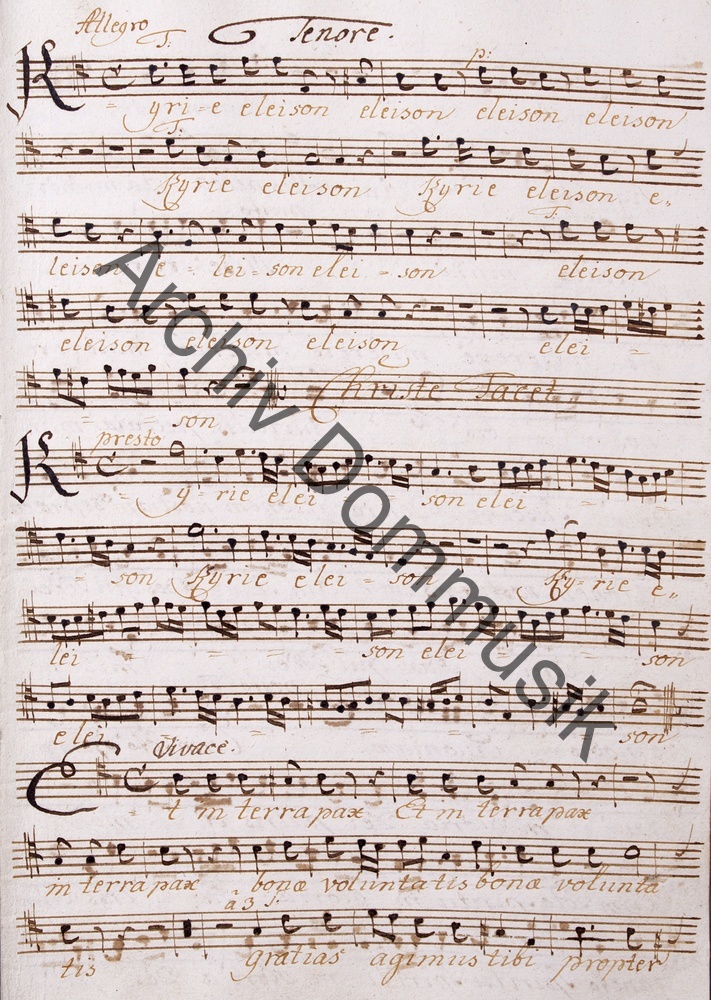 Allegro
Tenore.
T:
p:
Kyri-e eleison eleison eleison eleison
T:
Kyrie eleison Kyrie eleison e„
leison e - lei-son elei - son eleison
eleison eleison eleison elei -
- - son Christe Tacet
presto
Ky-rie elei - son elei -
- son Kyrie elei - son Ky-rie e„
lei - - - son elei - - son
elei - - - - - son
Vivace.
Et in terra pax Et in terra pax
in terra pax bonæ voluntatis bonæ volunta
à 3
tis gratias agimus tibi propter
Archiv Dommusik